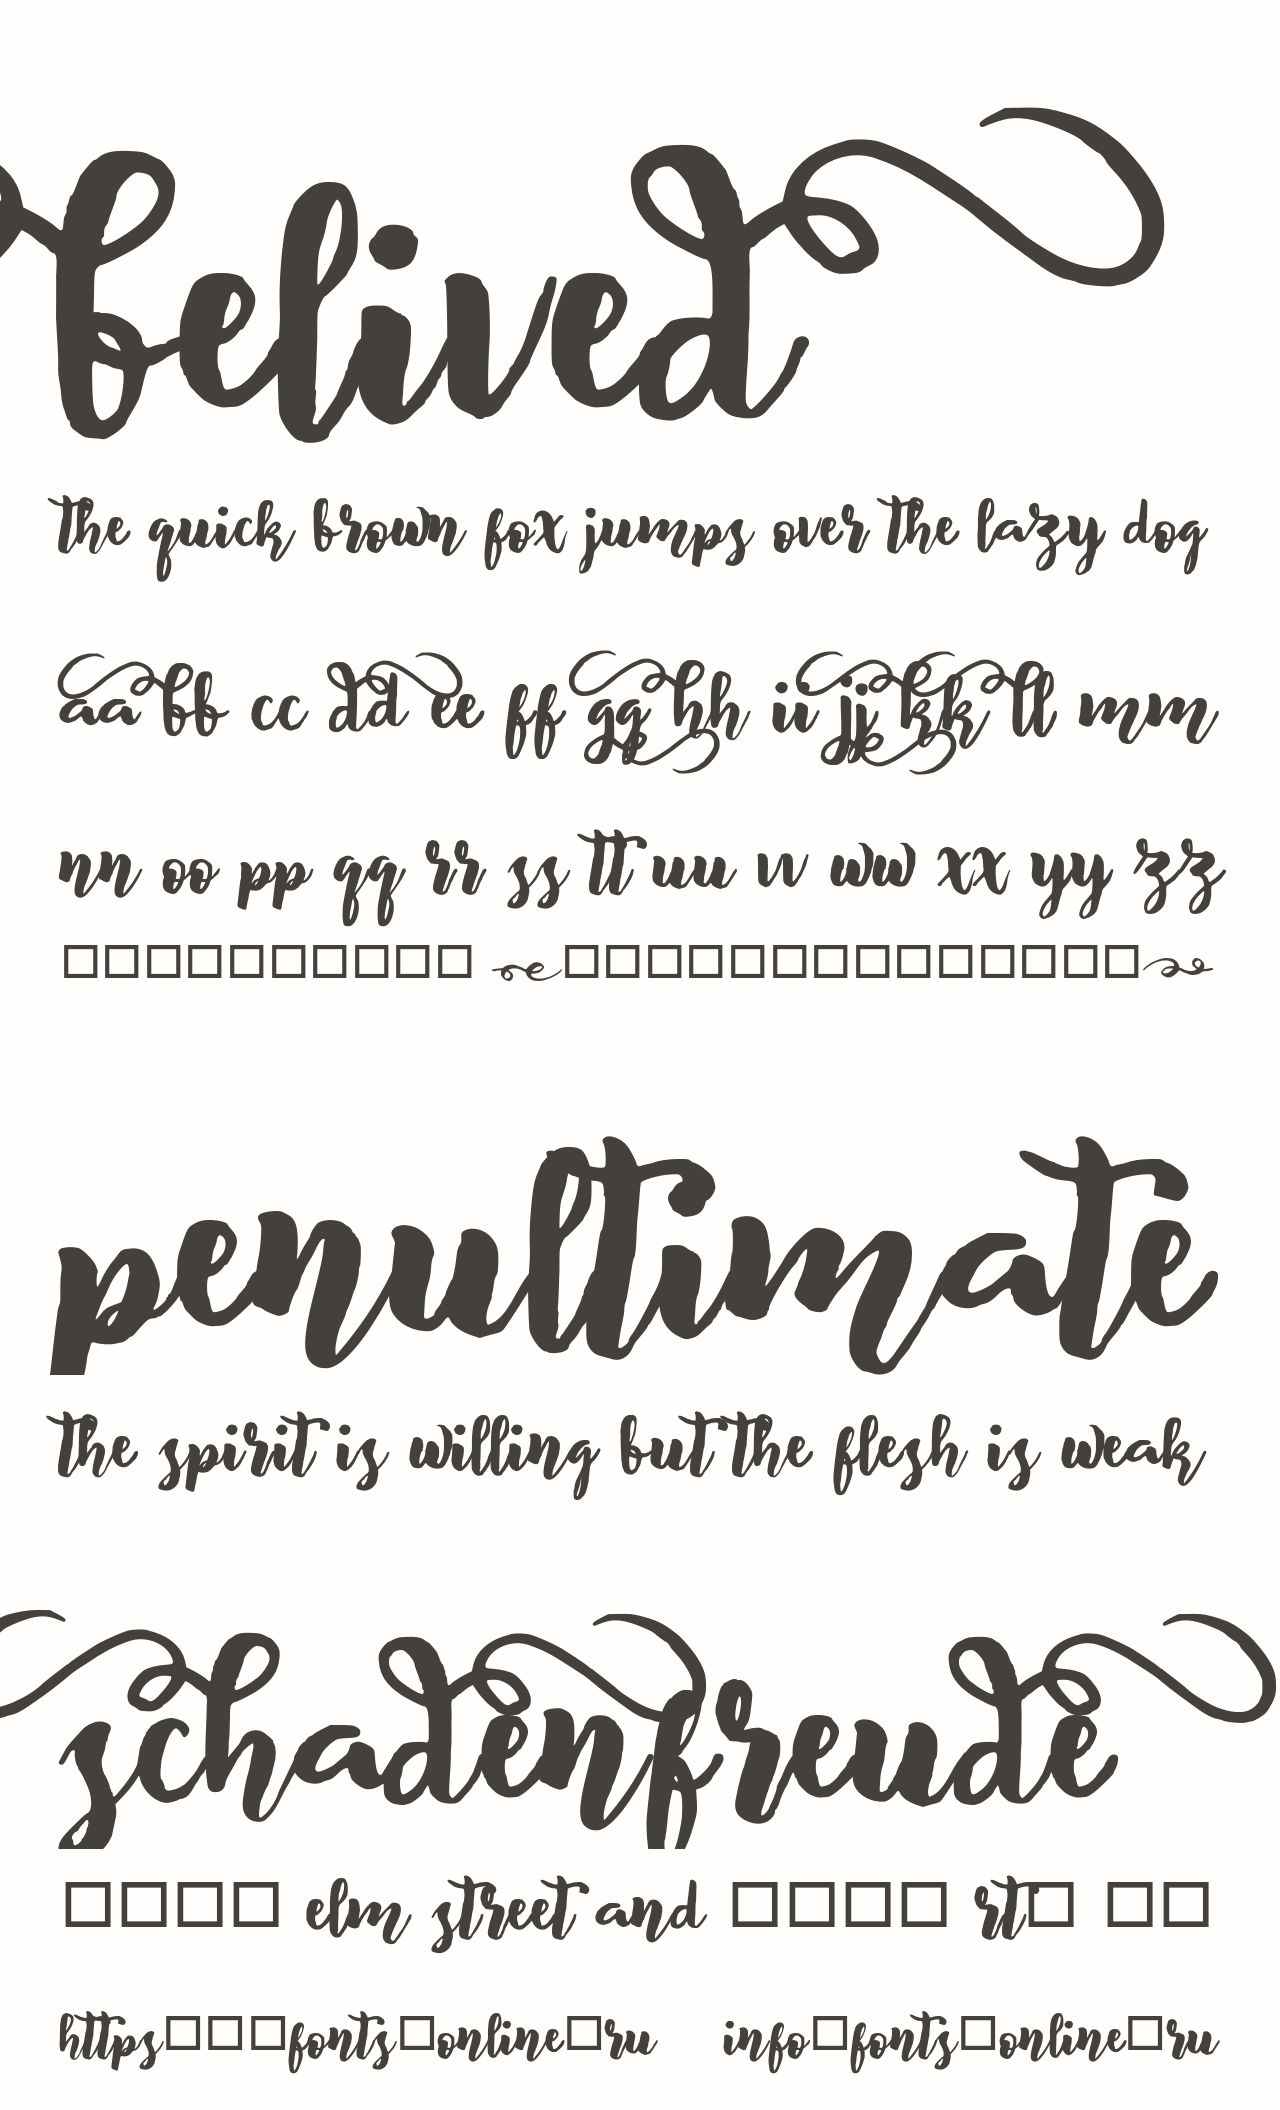 belived
the quick brown fox jumps over the lazy dog
aa bb cc dd ee ff gg hh ii jj kk ll mm
nn oo pp qq rr ss tt uu vv ww xx yy zz
penultimate
the spirit is willing but the flesh is weak
schadenfreude
□□□□ elm street and □□□□ rt□ □□
https□□□fonts□online□ru info□fonts□online□ru